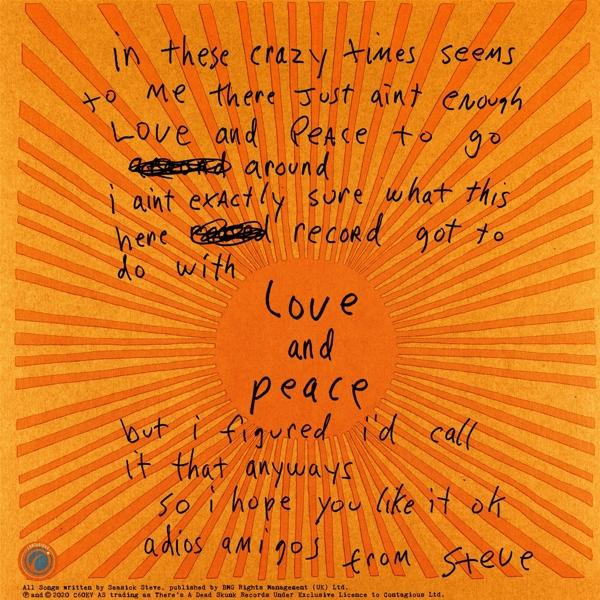 in these crazy times seems
to me there just aint enough
LOVE and PeAce to go
around
i aint exActly sure what this
here record got to
do with
Love
and
peace
but i figured i'd call
it that anyways
so i hope you like it ok
adios amigos from Steve
All Songs written by Seasick Steve, published by BMG Rights Management (UK) Ltd.
℗ and © 2020 C60EV AS trading as There's A Dead Skunk Records Under Exclusive Licence to Contagious Ltd.